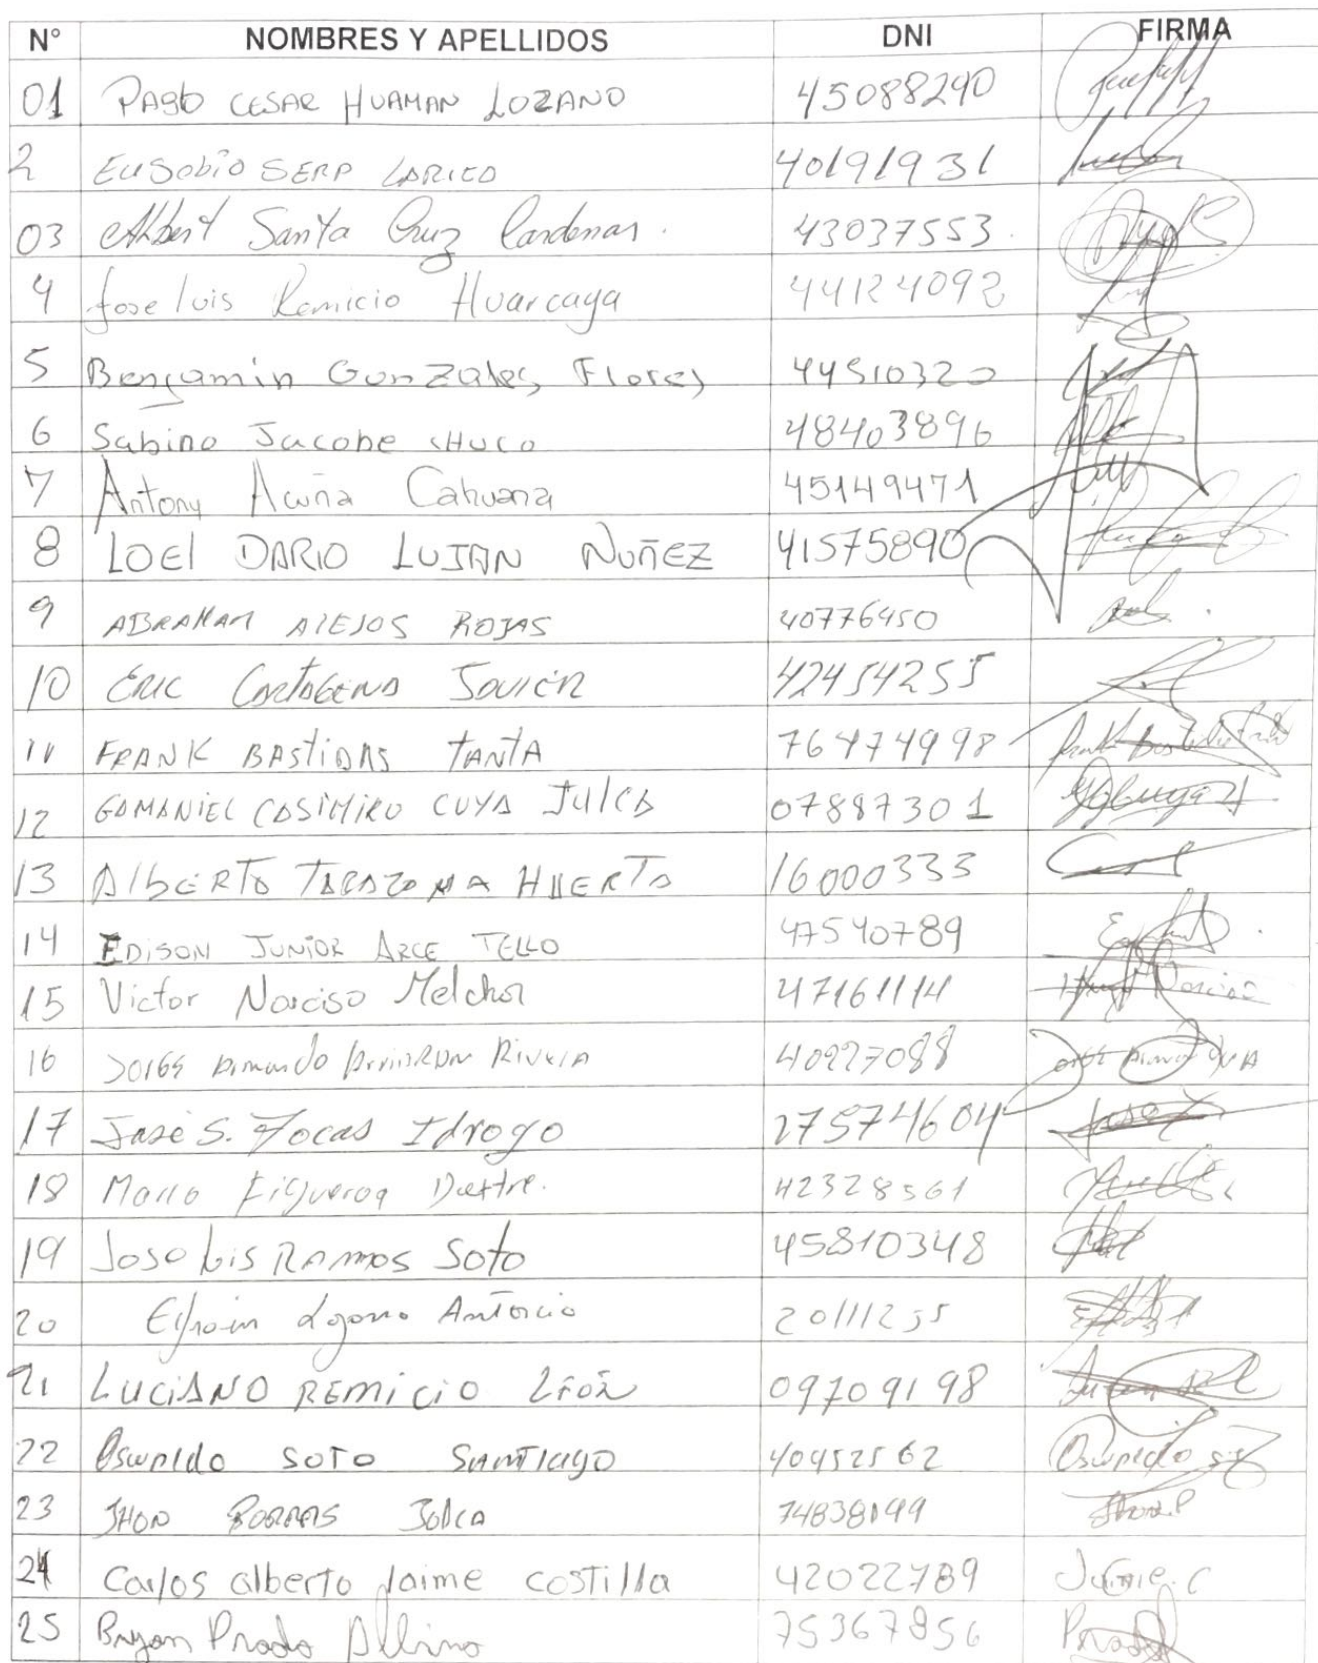 N° NOMBRES Y APELLIDOS DNI FIRMA
01 PABLO CESAR HUAMAN LOZANO 45088290
2 EUSEbio SERP LARICO 40191931
03 Albert Santa Cruz Cardenas. 43037553.
4 Jose luis Remicio Huarcaya 44124092
5 Benjamin Gonzales Flores 44510320
6 Sabino Jacobe CHUCO 48403896
7 Antony Acuña Cahuana 45149471
8 LOEl DARIO LUJAN NUÑEZ 41575890
9 ABRAHAM ALEJOS ROJAS 40776450
10 ERIC CARTAGENA JAVIER 42454255
11 FRANK BASTIDAS TANTA 76474998
12 GAMANIEL CASIMIRO CUYA JUlCA 07887301
13 AlbERTO TARAZONA HUERTA 16000333
14 EDISON JUNIOR ARCE TELLO 47540789
15 Victor Narciso Melchor 47161114
16 JORGE Armando RIVERA 40227088
17 José S. Focas Idrogo 27574604
18 Marco Figueroa 42328561
19 Jose Luis RAMOS Soto 45810348
20 Efrain Antonio 20111255
21 LUCIANO REMICIO LEÓN 09709198
22 Oswaldo SOTO SANTIAGO 40452562 Oswaldo
23 JHON PORRAS 74838199 Jhon.P
24 Carlos alberto Jaime costilla 42022789 Jaime.C
25 Bryan Prado Albino 75367856 Prado